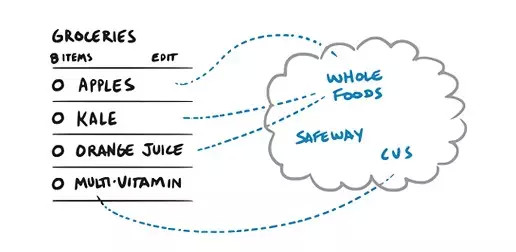 GROCERIES
8 ITEMS EDIT
O APPLES
O KALE
O ORANGE JUICE
O MULTI-VITAMIN
WHOLE
FOODS
SAFEWAY
CVS